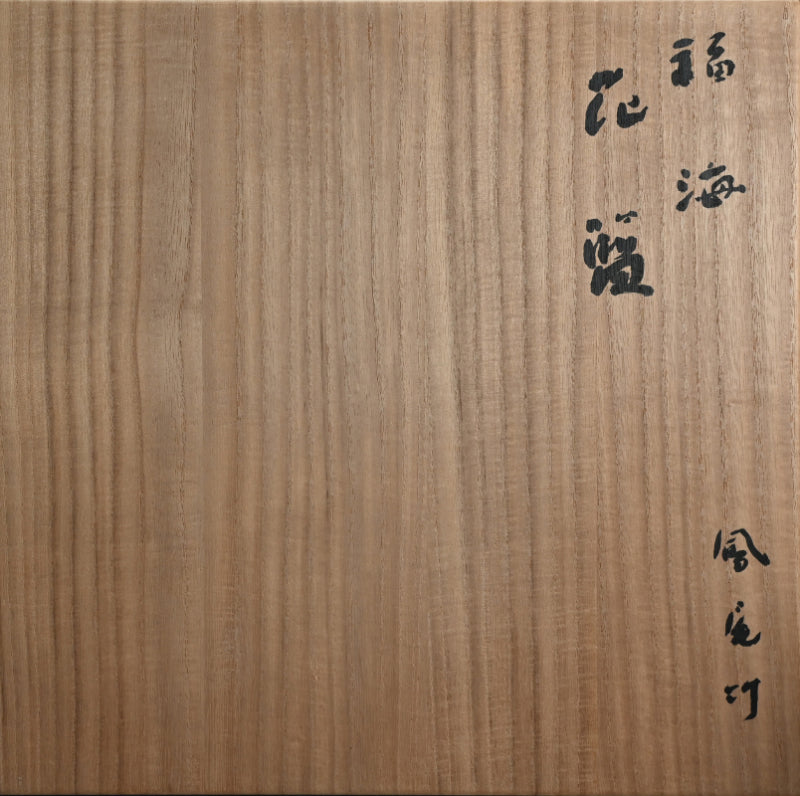 福海
花籃
鳳尾竹